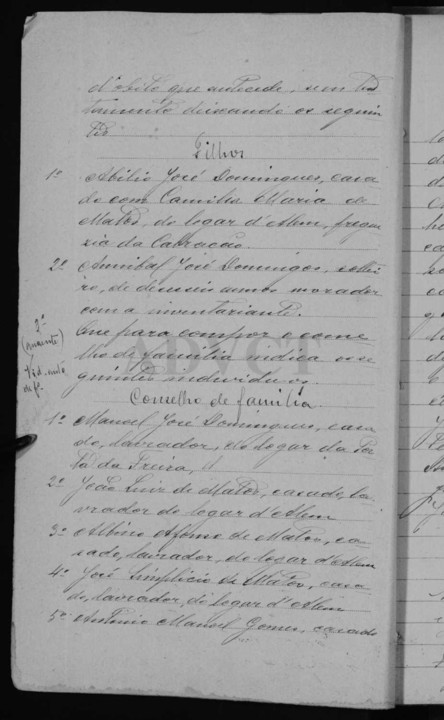 d'obito que antecede, sem tes
tamento deixando os seguin
tes
Filhos
1º Abilio José Domingues, casa
do com Camilla Maria de
Mattos, do logar d'Além, fregue
zia da Cabração.
2º Annibal José Domingos, soltei
ro, de desaseis annos morador
com a inventariante.
Que para compor o conse
lho de familia indica os se
guintes individuos.
2º
(ausente)
Vid.
Conselho de familia.
1º Manoel José Domingues, casa
do, lavrador, do logar da
da Freira,
2º João Luiz de Mattos, casado, la
vrador do logar d'Além
3º Albino Afonso de Mattos, ca
sado, lavrador, do logar d'Além
4º José Simplicio de Mattos, casa
do, lavrador, do logar d'Além
5º Antonio Manoel Gomes, casado
ADVCT